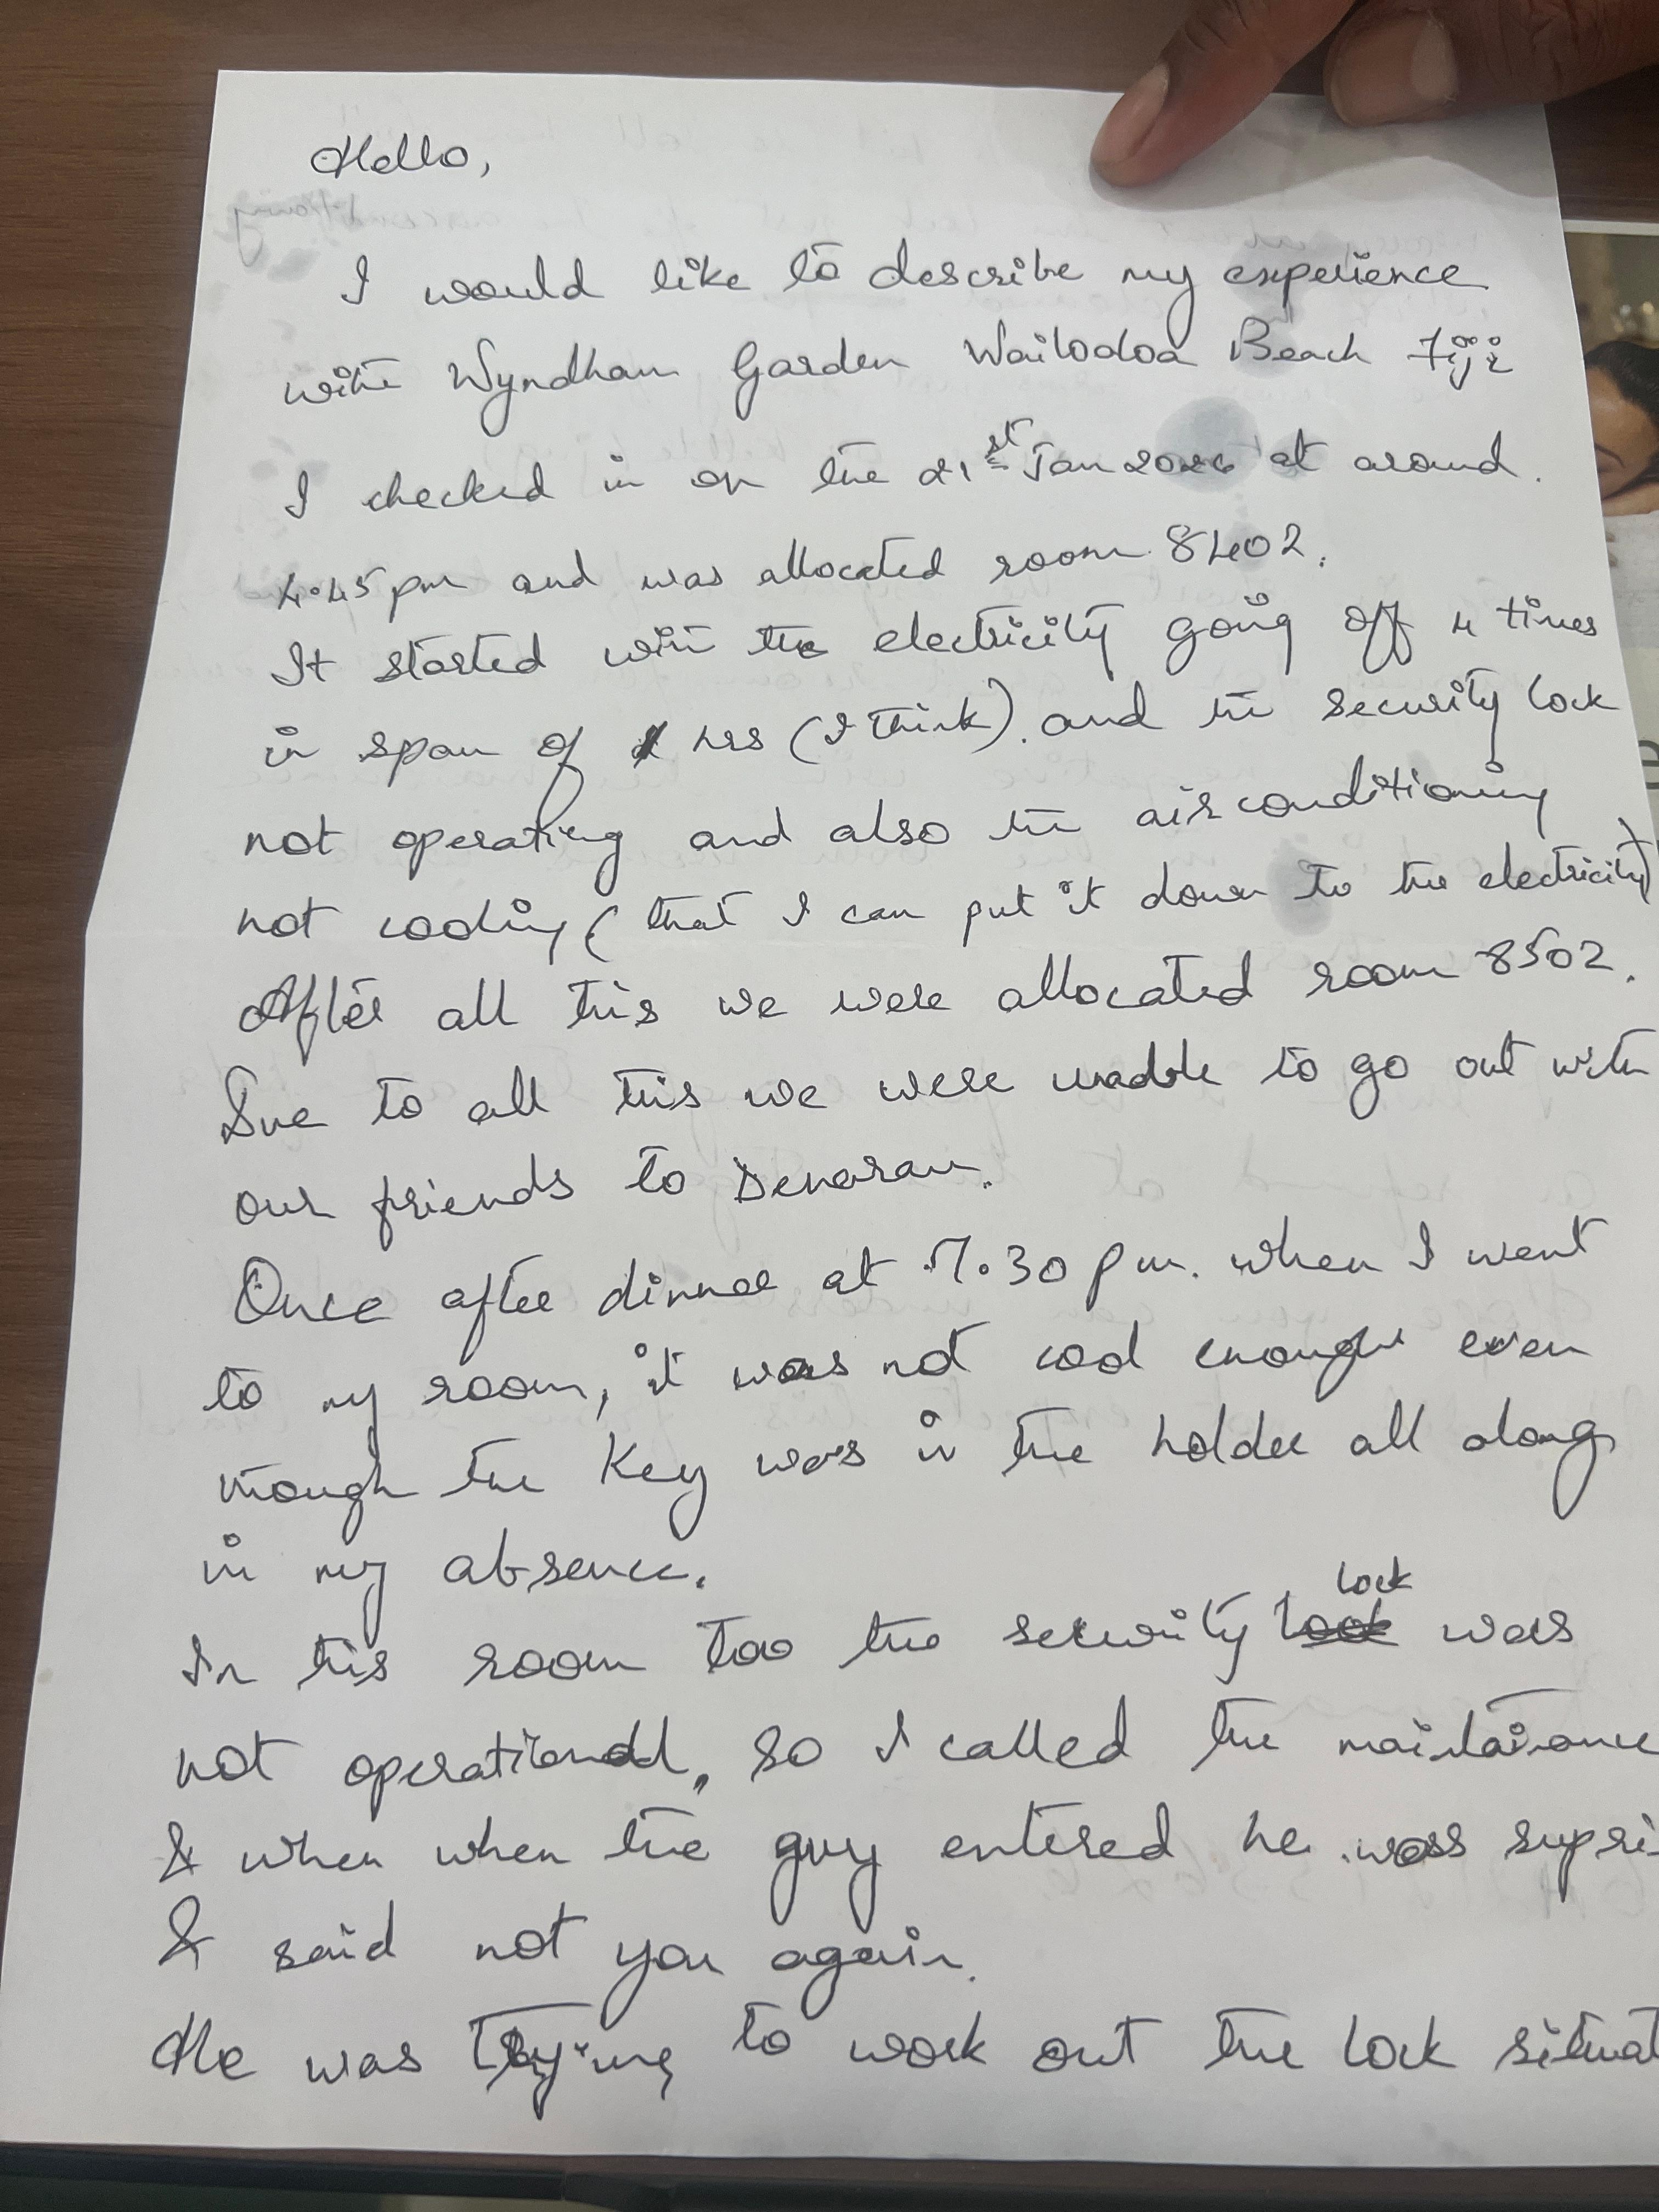 Hello,
I would like to describe my experience
with Wyndham Garden Wailodoa Beach Fiji
I checked in on the 21st Jan 2026 at around.
4.45 pm and was allocated room 8402.
It started with the electricity going off 4 times
in span of hrs (I think). and the security lock
not operating and also the airconditioning
not cooling (that I can put it down to the electricity)
After all this we were allocated room 8502.
Due to all this we were unable to go out with
our friends to Denarau.
Once after dinner at 7.30 pm. when I went
to my room, it was not cool enough even
though the key was in the holder all along
in my absence.
In this room too the security lock was
not operational, so I called the maintainance
& when when the guy entered he was supri
& said not you again.
He was trying to work out the lock situat